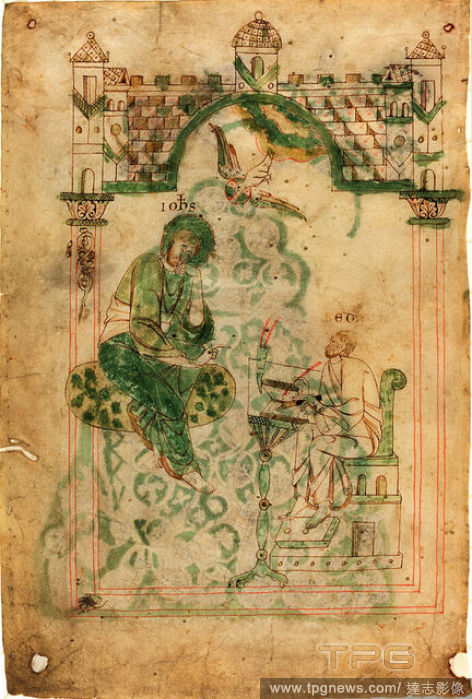 IOħS
TPG
www.tpgnews.com / 達志影像